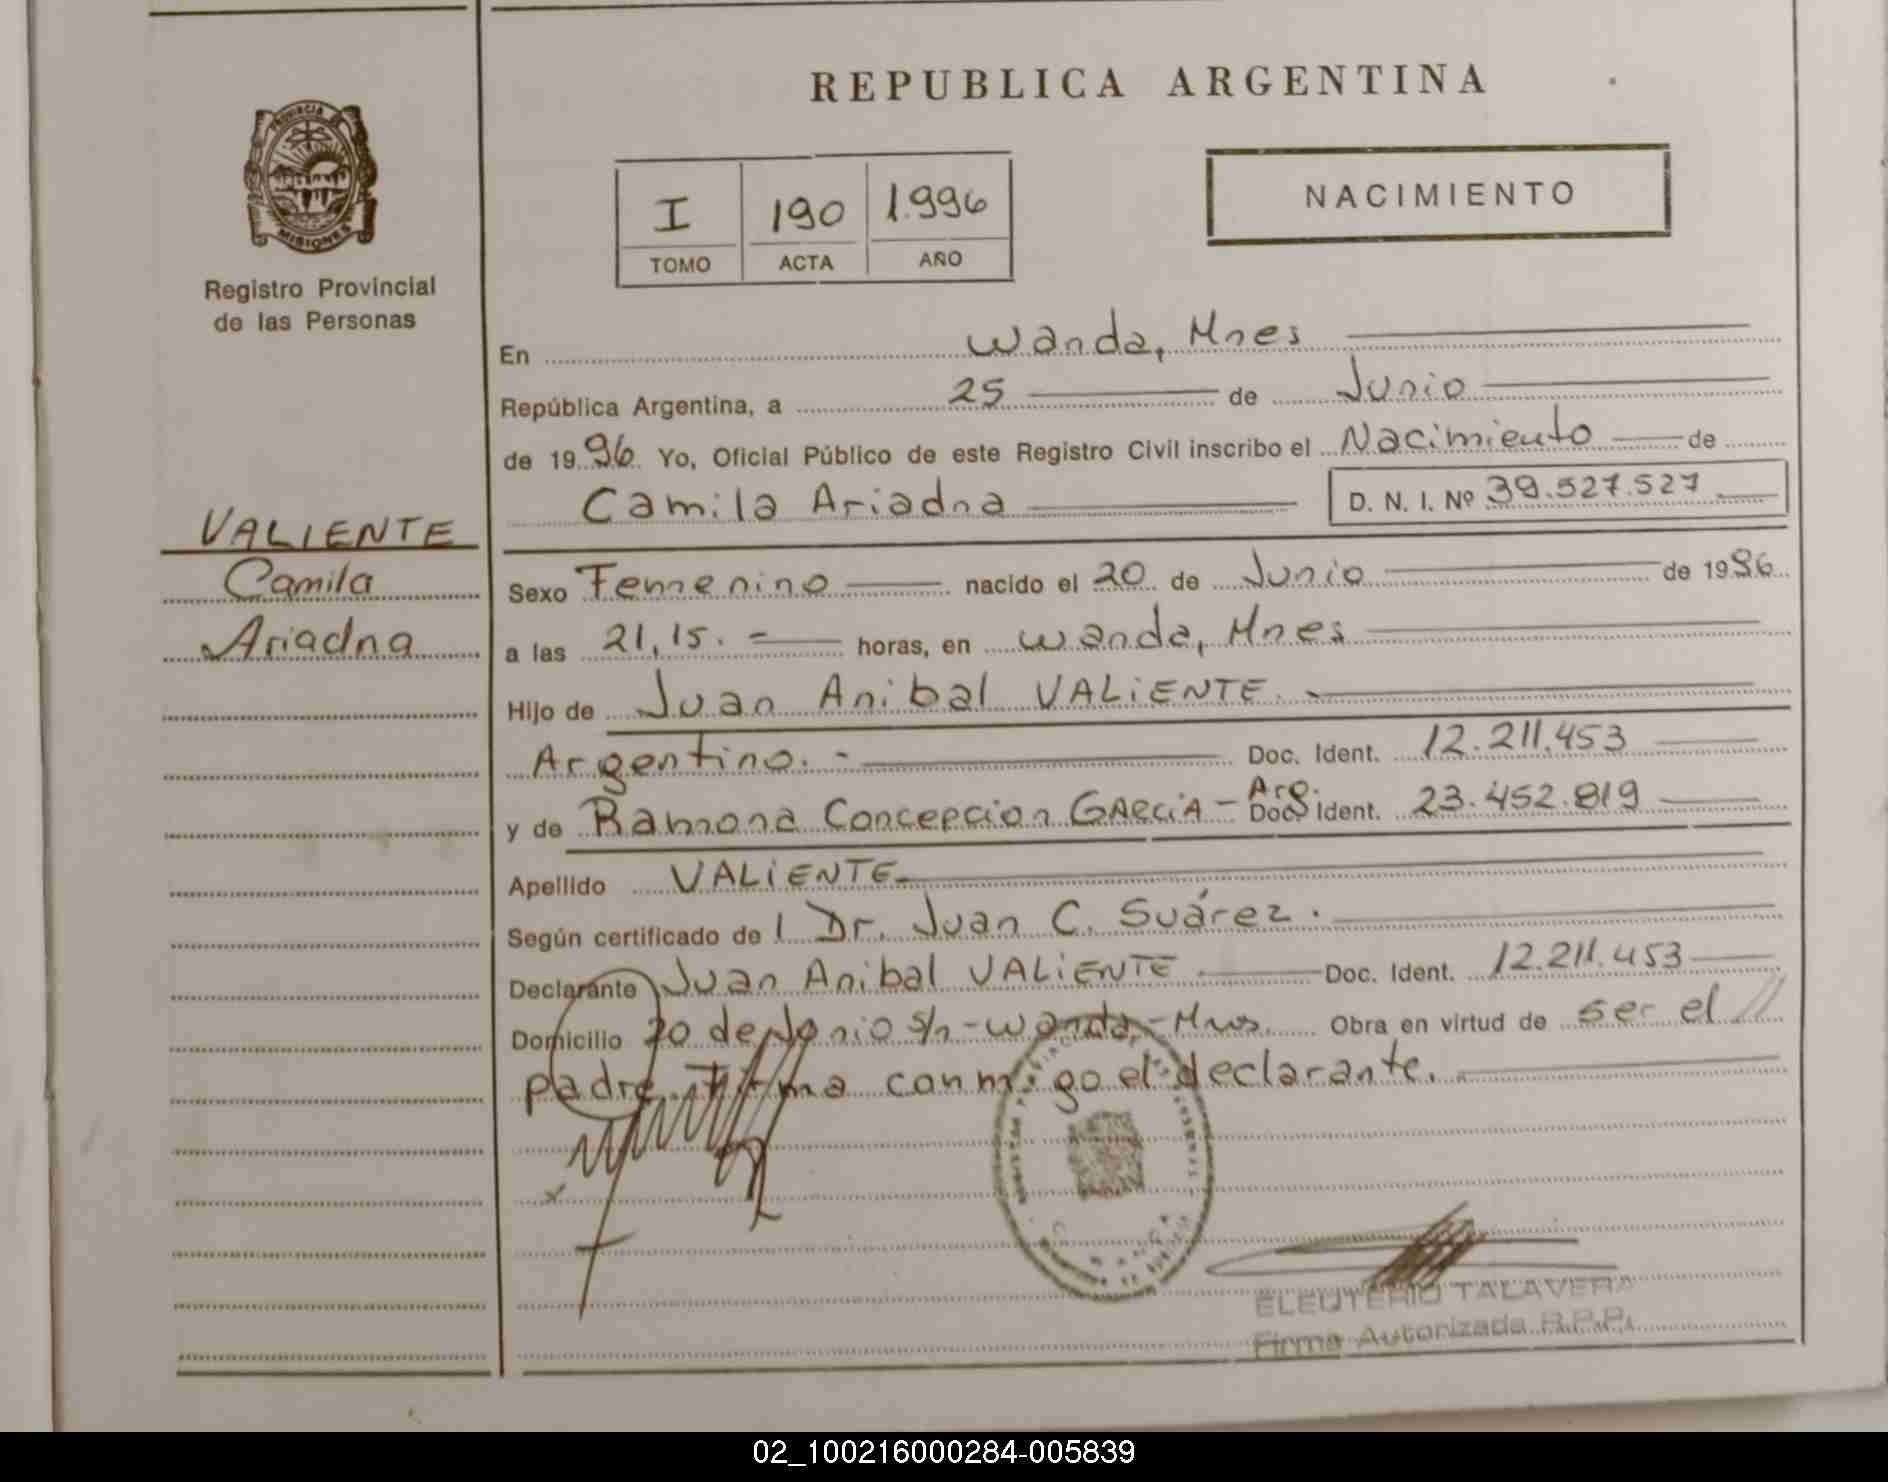 REPUBLICA ARGENTINA
PROVINCIA DE
MISIONES
Registro Provincial
de las Personas
I 190 1.996
TOMO ACTA AÑO
NACIMIENTO
VALIENTE
Camila
Ariadna
En Wanda, Mnes
República Argentina, a 25 de Junio
de 1996 Yo, Oficial Público de este Registro Civil inscribo el Nacimiento de
Camila Ariadna D. N. I. Nº 39.527.527
Sexo Femenino nacido el 20 de Junio de 1996
a las 21,15.- horas, en Wanda, Mnes
Hijo de Juan Anibal VALiENTE.-
Argentino.- Doc. Ident. 12.211.453
y de Ramona Concepcion GARCiA - Arg. Doc. Ident. 23.452.819
Apellido VALiENTE
Según certificado de l Dr. Juan C. Suárez.
Declarante Juan Anibal VALiENTE Doc. Ident. 12.211.453
Domicilio 20 de Junio s/n-Wanda-Mnes. Obra en virtud de ser el //
padre. Firma conmigo el declarante.
ELEUTERIO TALAVERA
Firma Autorizada R.P.P.
02_100216000284-005839